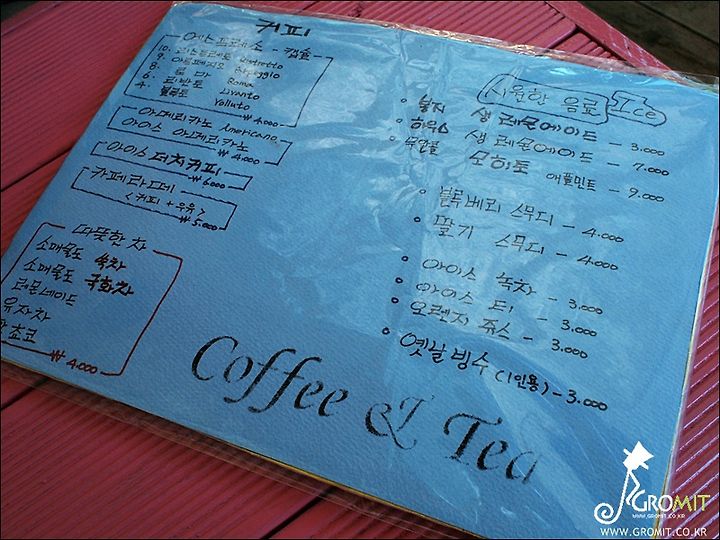 커피
에스프레소 - 캡슐
10. 리스트레토 Ristretto
9. 아르페지오 Arpeggio
8. 로마 Roma
6. 리반토 Livanto
4. 볼루토 Volluto
₩4.000
아메리카노 Americano
아이스 아메리카노
₩4.000
아이스 더치커피
₩6000
카페라떼
<커피 + 우유>
₩5.000
따뜻한 차
소매물도 쑥차
소매물도 국화차
레몬네이드
유자차
초코
₩4.000
시원한 음료 Ice
생 레몬에이드 - 3.000
하우스 생 레몬에이드 - 7.000
무알콜 모히토 애플민트 - 9.000
블루베리 스무디 - 4.000
딸기 스무디 - 4.000
아이스 녹차 - 3.000
아이스 티 - 3.000
오렌지 쥬스 - 3.000
옛날 빙수 (1인용) - 3.000
Coffee & Tea
GROMIT
WWW.GROMIT.CO.KR
WWW.GROMIT.CO.KR